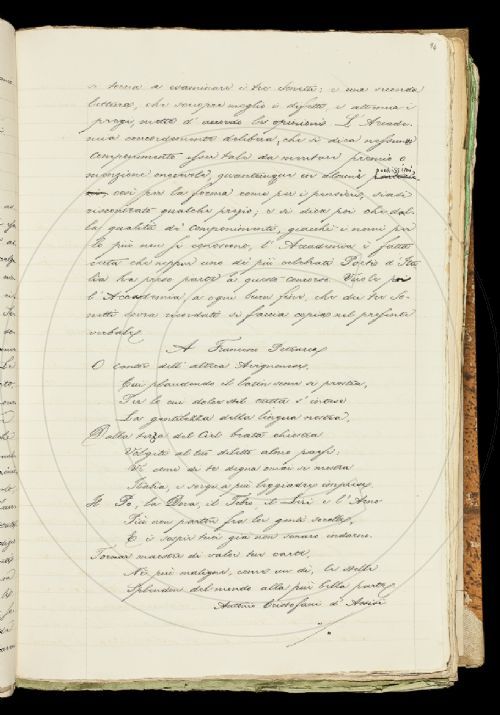 94
si torna a esaminare i tre Sonetti; e una seconda
lettura, che scuopre meglio i difetti e attenua i
pregi, mette d'accordo le opinioni. L'Accade-
mia concordemente delibera, che si dica nessun
Componimento esser tale da meritare premio o
menzione onorevole, quantunque in alcuni
così per la forma come per i pensieri, siasi
riscontrato qualche pregio; e si dica poi che dal-
la qualità di Componimenti, giacchè i nomi per
lo più non si conoscono, l'Accademia è fatta
certa che neppur uno dei più celebrati Poeti d'Ita-
lia ha preso parte a questo concorso. Vuole poi
l'Accademia, a ogni buon fine, che dei tre So-
netti sovra ricordati si faccia copia nel presente
verbale.
A Francesco Petrarca
O cantor dell'altera Avignonese,
Cui plaudendo il latin sermo si prostra,
Tra le cui dolci stil tutta s'intese
La gentilezza della lingua nostra,
Dalla terza del Ciel beata chiostra
Volgiti al tuo diletto almo paese:
Ve' come di te degna omai si mostra
Italia, e sorge a più leggiadre imprese.
Il Po, la Dora, il Tebro il Liri e l'Arno
Più non parton fra lor genti sorelle,
E i sospir tuoi già non sonaro indarno.
Tornar maestra di valor tu
Nè più maligne, come un dì, le stelle
Splendon del mondo alla più bella parte.
Antonio Cristofani d'Assisi